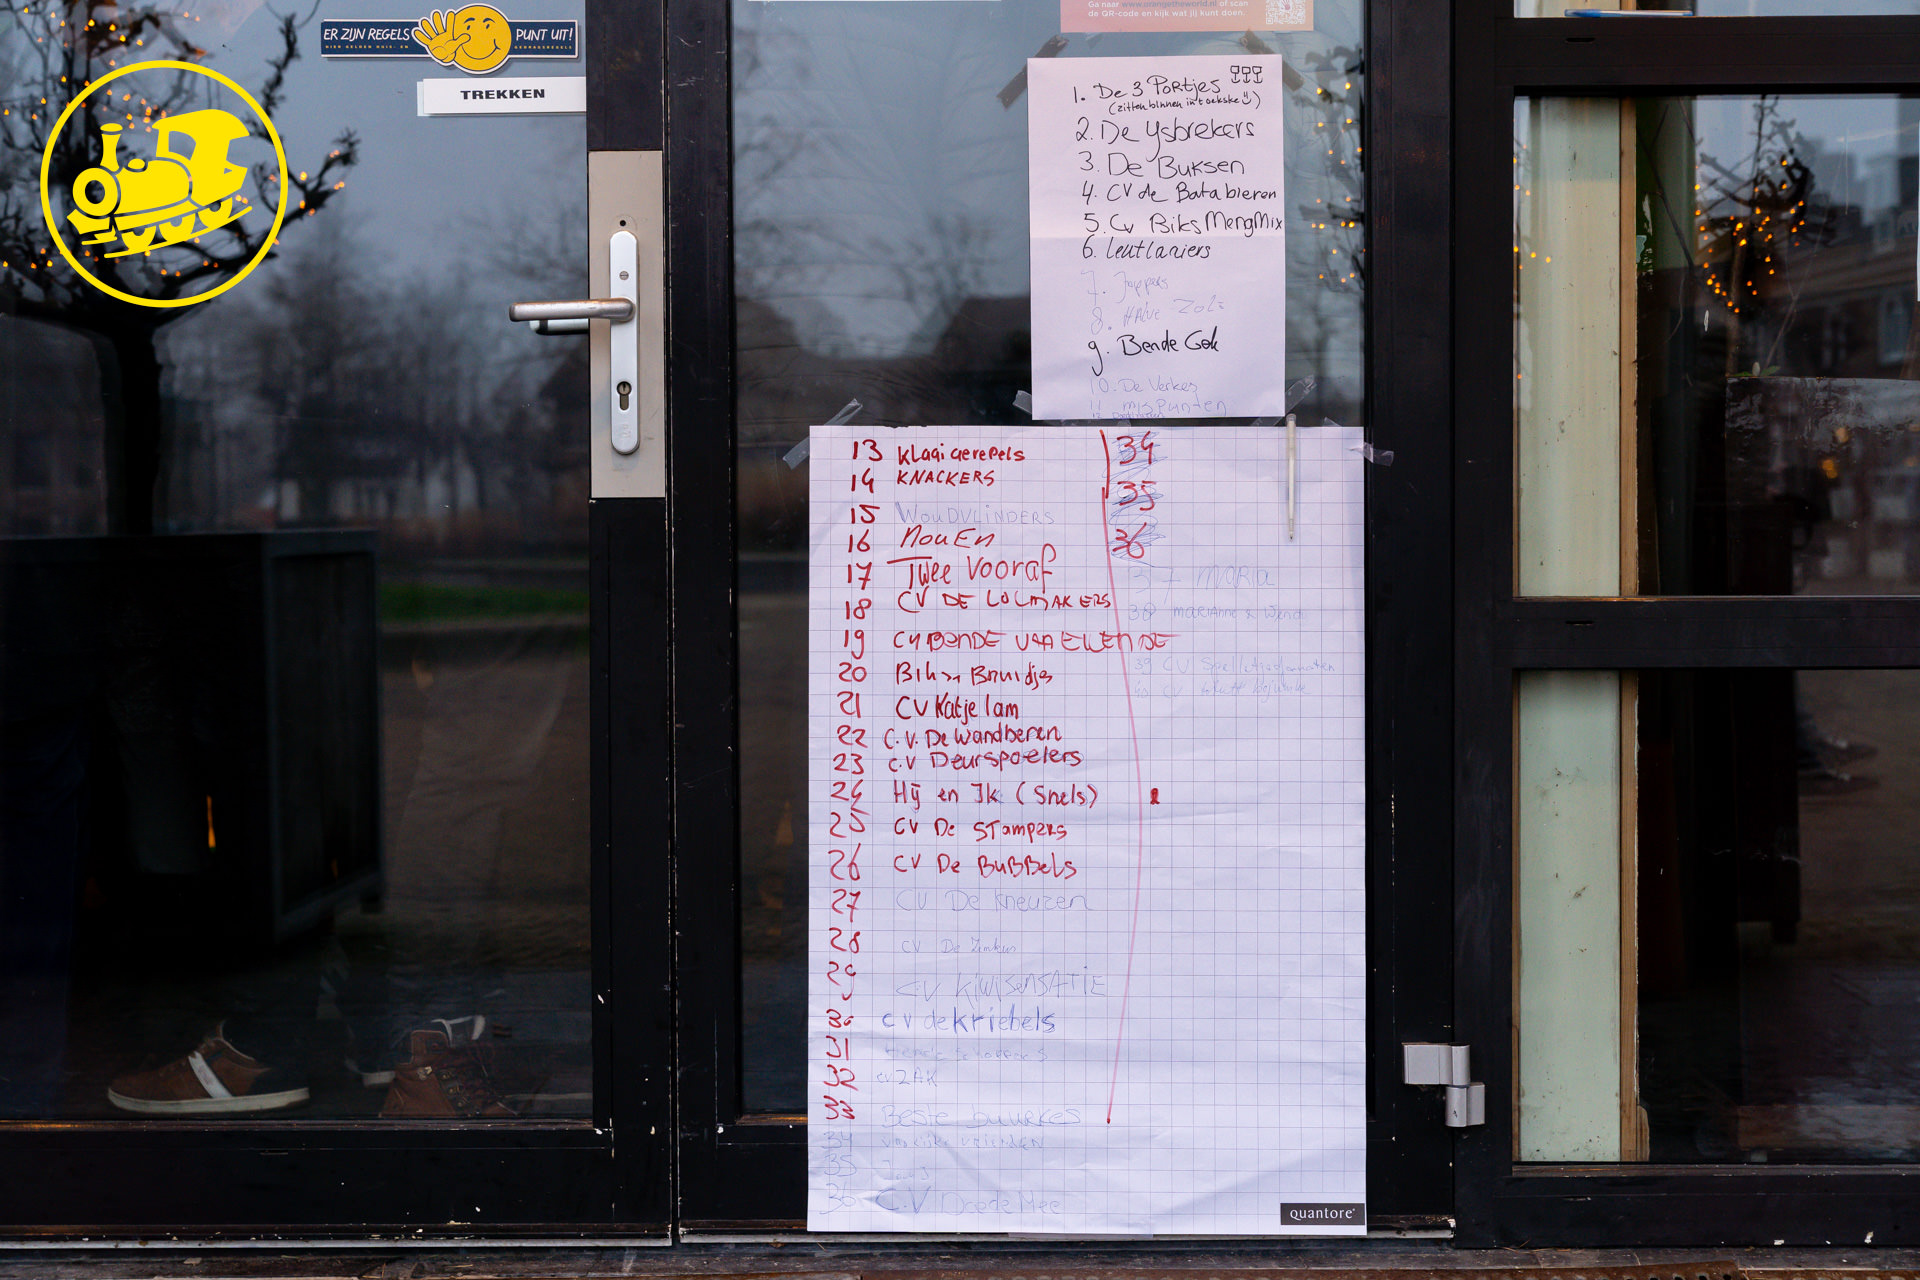 ER ZIJN REGELS PUNT UIT!
HIER GELDEN HUIS- EN GEDRAGSREGELS
TREKKEN
Ga naar www.orangetheworld.nl of scan
de QR-code en kijk wat jij kunt doen.
1. De 3 Portjes
(zitten binnen in 't
2. De Ysbrekers
3. De Buksen
4. CV de Batabieren
5. Cv Biks MengMix
6. leutlaniers
7. Jappers
8. HALVE
9. Bende Gek
10. De
11 mispunten
13 Klaaigerepels
14 KNACKERS
15 WOUDVLINDERS
16 Nou En
17 Twee Vooraf
18 CV DE LOLMAKERS
19 CV BENDE
20
21 CV Katje lam
22 C.V. De Wandberen
23 C.V Deurspoelers
24 Hij en Ik (Snels)
25 CV De STampers
26 CV De BuBBels
27 CV De Kneuzen
28 CV De
29 C.V KIWISENSATIE
30 CV de Kriebels
31
32 CV ZAK
33 Beste buurkes
34 VRIENDEN
35
36 C.V Doede Mee
34
35
36
37 MARIA
38 MARIANNE &
39 CV
40 CV
quantore